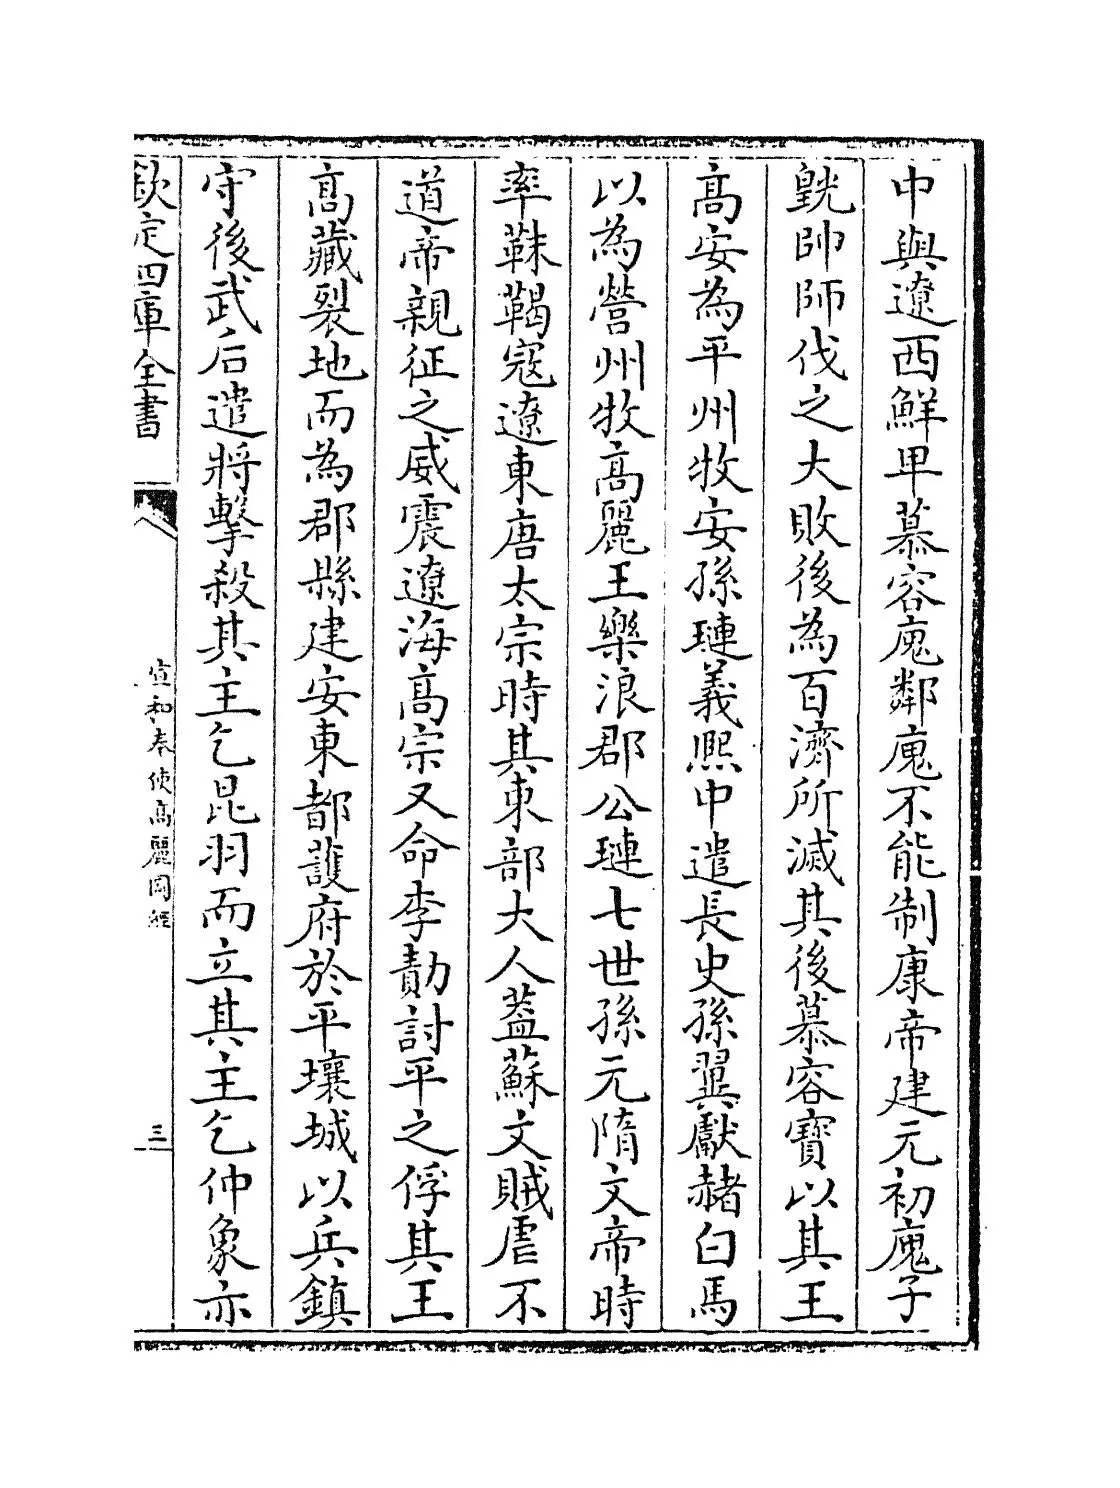 中與遼西鮮卑慕容廆鄰廆不能制康帝建元初廆子
皝帥師伐之大敗後為百濟所滅其後慕容寶以其王
高安為平州牧安孫璉義熙中遣長史孫翼獻赭白馬
以為營州牧高麗王樂浪郡公璉七世孫元隋文帝時
率靺鞨寇遼東唐太宗時其東部大人蓋蘇文賊虐不
道帝親征之威震遼海高宗又命李勣討平之俘其王
高藏裂地而為郡縣建安東都護府於平壤城以兵鎮
守後武后遣將擊殺其主乞昆羽而立其主乞仲象亦
欽定四庫全書
宣和奉使高麗圖經
三